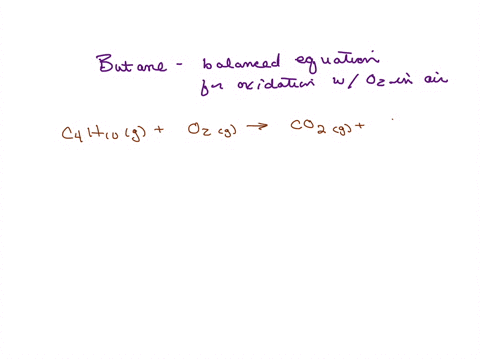 Butane - balanced equation
for oxidation w/ O2 in air
C4H10(g) + O2(g) → CO2(g) +